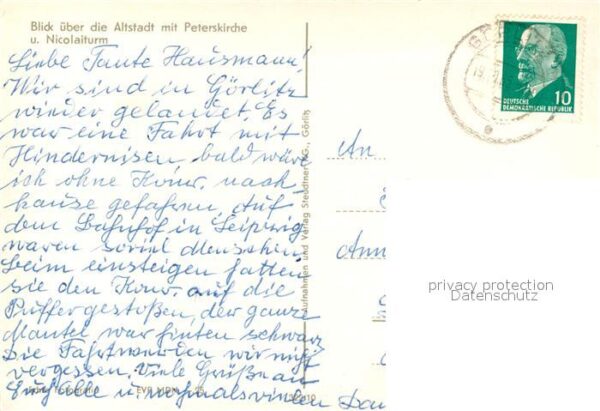 Blick über die Altstadt mit Peterskirche
u. Nicolaiturm
Liebe Tante Hausmann!
Wir sind in Görlitz
wieder gelandet. Es
war eine Fahrt mit
Hindernisen, bald wäre
ich ohne Konr. nach
hause gefahren. Auf
dem Bahnhof in Leipzig
waren soviel Menschen
beim einsteigen hatten
sie den Konr. auf die
Püffer gestoßen, der ganze
Mantel war hinten schwarz
Die Fahrt werden wir nie
vergessen. Viele Grüße an
Euch Alle u. nochmals vielen Dan
Aufnahmen und Verlag Steudtner KG., Görlitz
DEUTSCHE
DEMOKRATISCHE REPUBLIK
10
An
Ann
privacy protection
Datenschutz